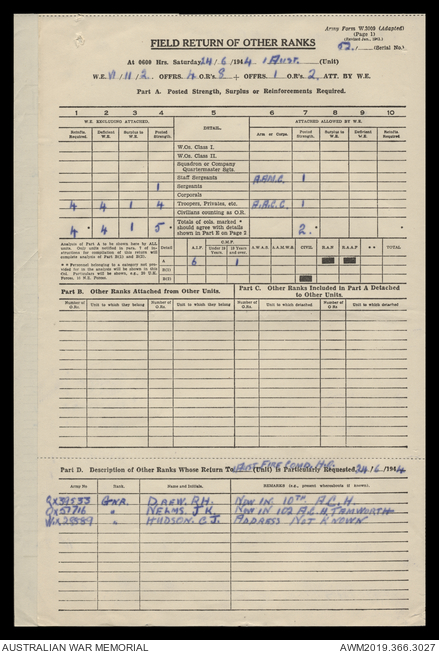 Army Form W.3009 (Adapted)
(Page 1)
(Revised Jan., 1943.)
52. (Serial No.)
FIELD RETURN OF OTHER RANKS
At 0600 Hrs. Saturday 24/6/1944 1 Aust. (Unit)
W.E. VI/11/2 OFFRS. 4 O.R's 8 + OFFRS. 1 O.R's 2 ATT. BY W.E.
Part A. Posted Strength, Surplus or Reinforcements Required.
1 2 3 4 5 6 7 8 9 10
W.E. EXCLUDING ATTACHED. ATTACHED ALLOWED BY W.E.
Reinfts. Required. Deficient W.E. Surplus to W.E. Posted Strength. DETAIL. Arm or Corps. Posted Strength. Surplus to W.E. Deficient W.E. Reinfts. Required.
W.Os. Class I.
W.Os. Class II.
Squadron or Company Quartermaster Sgts.
Staff Sergeants A.A.M.C. 1
1 Sergeants
Corporals
4 4 1 4 Troopers, Privates, etc. A.A.C.C. 1
Civilians counting as O.R.
4 * 4 1 5 * Totals of cols. marked * should agree with details shown in Part E on Page 2 2 *
Analysis of Part A to be shown here by ALL units. Detail A.I.F. C.M.F. Under 19 Years. 19 Years and over. A.W.A.S. A.A.M.W.S. CIVIL R.A.N R.A.A.F * * TOTAL
A 6 1
* * Personnel belonging to a category not provided for in the analysis will be shown in this Col. B(1)
B(2)
Part B. Other Ranks Attached from Other Units. Part C. Other Ranks Included in Part A Detached to Other Units.
Number of O.Rs. Unit to which they belong Number of O.Rs. Unit to which they belong Number of O.Rs. Unit to which detached Number of O.Rs. Unit to which detached
Part D. Description of Other Ranks Whose Return To (Unit) is Particularly Requested 24/6/1944
Army No Rank. Name and Initials. REMARKS (e.g., present whereabouts if known).
GNR. DREW. R.H. NOW IN 10TH A.C.H.
QX57716 " NELMS. J.K. NOW IN 102 A.G.H. TAMWORTH
" HUDSON. C.J. ADDRESS NOT KNOWN
AUSTRALIAN WAR MEMORIAL AWM2019.366.3027